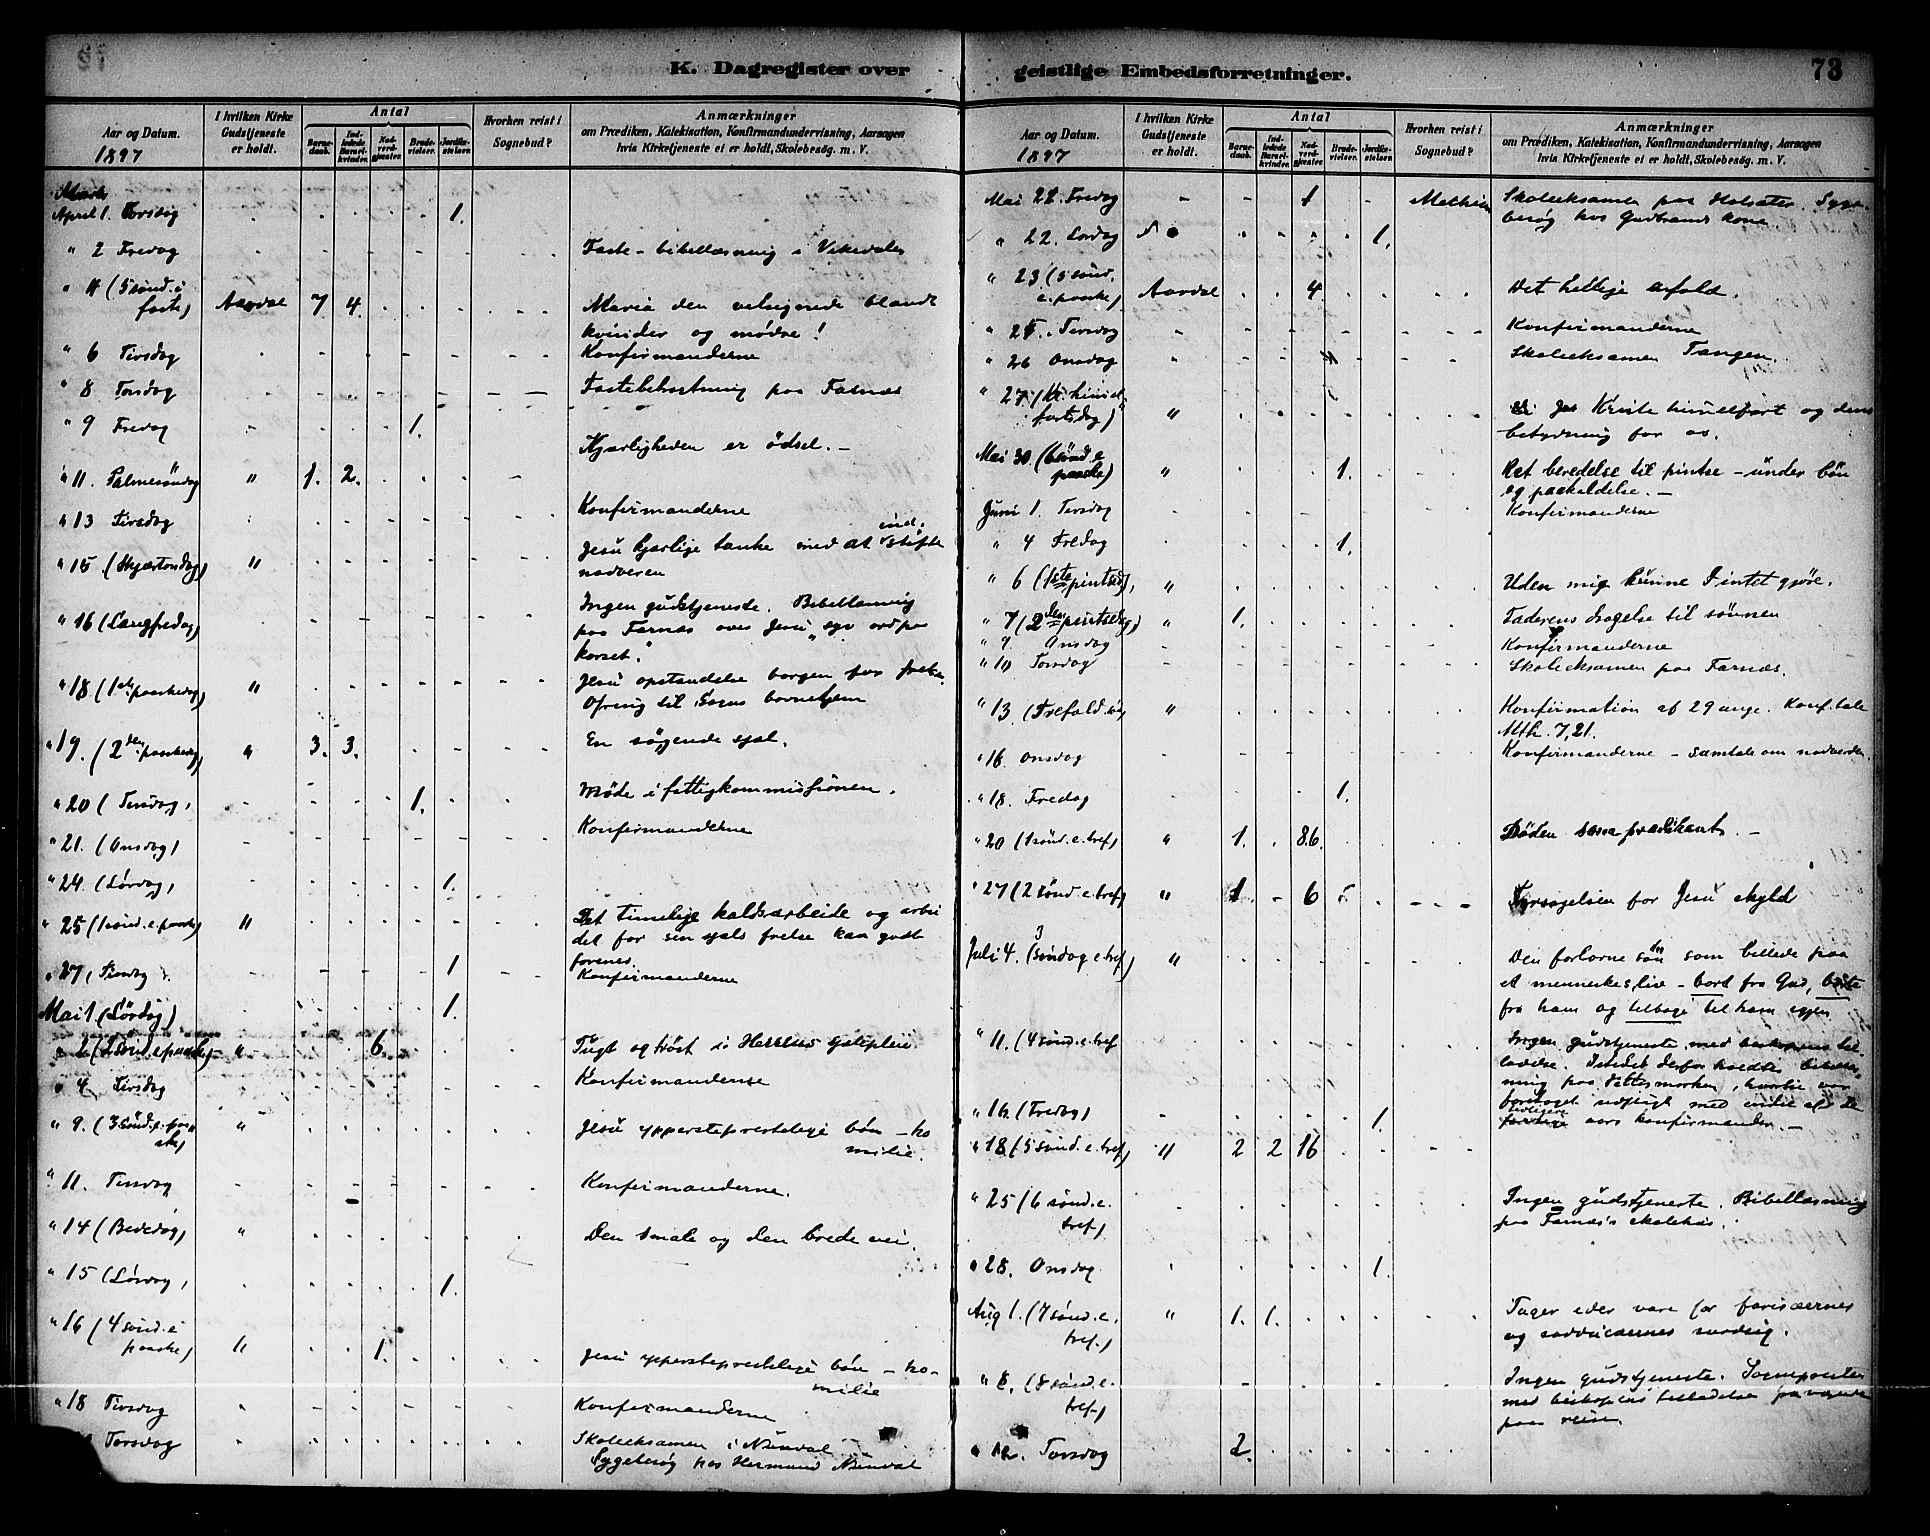 K. Dagregister over
Aar og Datum.
1897
I hvilken Kirke Gudstjeneste er holdt.
Antal
Barnedaab.
Indledede Barselkvinder.
Nadverdgjester.
Brudevielser.
Jordfæstelser.
Hvorhen reist i Sognebud?
Anmærkninger
om Prædiken, Katekisation, Konfirmandundervisning, Aarsagen
hvis Kirketjeneste ei er holdt, Skolebesög. m. V.
April 1. Torsdag 1.
" 2 Fredag Faste-bibellæsning i Vikedalen
" 4 (5 sönd. i
faste) Aardal 7 4. Maria den velsignede blandt
kvinder og mödre!
" 6 Tirsdag Konfirmanderne
" 8 Torsdag Fastebetragtning paa Farnæs
" 9 Fredag 1.
Kjærligheden er ödsel. -
" 11. Palmesöndag " 1. 2.
" 13 Tirsdag Konfirmanderne
" 15 (Skjærtorsdag) " Jesu kjærlige tanke med at indstifte
nadveren
" 16 (Langfredag) Ingen gudstjeneste. Bibellæsning
paa Farnæs over Jesu "syv ord paa
korset."
" 18 (1ste paaskedag) " Jesu opstandelse borgen for frelse.
Ofring til Sogns barnehjem
" 19. (2den paaskedag) " 3. 3. En sögende sjæl.
" 20 (Tirsdag) 1. Möde i fattigkommissionen.
" 21. (Onsdag) Konfirmanderne
" 24. (Lördag) 1.
" 25 (1 sönd. e. paaske) " Det timelige kaldsarbeide og arbei
det for sin sjæls frelse kan godt
forenes.
" 27, Tirsdag 1 Konfirmanderne
Mai 1. (Lördag) 1.
" 2 (2 sönd. e paaske) " 6. Tugt og tröst i Herrens sjælepleie.
" 4 Tirsdag Konfirmanderne
" 9. (3 sönd. e. paa
ske) " Jesu yppersteprestelige bön - ho
milie.
" 11. Tirsdag Konfirmanderne.
" 14 (Bededag) " Den smale og den brede vei.
" 15 (Lördag) 1.
" 16 (4 sönd. e
paaske) " 1. Jesu yppersteprestelige bön - ho-
milie
" 18 Tirsdag Konfirmanderne
Torsdag Skoleeksamen i Nundal
Sygebesög hos Hermund Nundal
geistlige Embedsforretninger.
73
Aar og Datum.
1897
I hvilken Kirke Gudstjeneste er holdt.
Antal
Barnedaab.
Indledede Barselkvinder.
Nadverdgjester.
Brudevielser.
Jordfæstelser.
Hvorhen reist i Sognebud?
Anmærkninger
om Prædiken, Katekisation, Konfirmandundervisning, Aarsagen
hvis Kirketjeneste ei er holdt, Skolebesög. m. V.
Mai 21. Fredag 1 Skoleeksamen paa Hofsæter. Syge-
besög hos Gudbrands kone
" 22. Lördag 1.
" 23 (5 sönd.
e. paaske) Aardal 4. Det hellige anfald.
" 25. Tirsdag Konfirmanderne
" 26 Onsdag Skoleeksamen Tangen.
" 27 (Kr. himmel-
fartsdag) " Kristi himmelfart og dens
betydning for os.
Mai 30. (6 sönd e
paaske) " 1. Ret beredelse til pintse - under bön
og paakaldelse. -
Juni 1. Tirsdag Konfirmanderne
" 4 Fredag 1.
" 6 (1ste pintsed.) " Uden mig kunne I intet gjöre.
" 7 (2den pintsedag) " 1. Faderens dragelse til sönnen
" 9. Onsdag Konfirmanderne
" 10 Torsdag Skoleeksamen paa Farnæs.
" 13 (Trefold. " Konfirmation af 29 unge. Konf.tale
Mth. 7,21.
" 16. Onsdag Konfirmanderne - samtale om nadverden
" 18. Fredag 1.
" 20 (1 sönd. e. tref) " 1. 86. Döden som prædikant. -
" 27 (2 sönd. e. tref) " 1 6 Forsagelsen for Jesu skyld
Juli 4. (3 söndag e. tref) " Den forlorne sön som billede paa
et menneskesliv - bort fra Gud, borte
fra ham og tilbage til ham igjen
" 11. (4 sönd. e. tref Ingen gudstjeneste med biskopens til-
ladelse. Istedet derfor holdtes bibellæs-
ning paa , hvortil var
foretaget udflugt med endel af de
tidligere aars konfirmander. -
" 16. (Fredag) 1.
" 18 (5 sönd. e. tref) " 2 2 16
" 25 (6 sönd. e.
tref) Ingen gudstjeneste. Bibellæsning
paa Farnæs's skolehus.
" 28. Onsdag 1.
Aug 1. (7 sönd. e.
tref.) " 1. 1. Tager eder vare for farisæernes
og sadducæernes surdeig.
" 8. (8 sönd. e.
tref.) Ingen gudstjeneste. Sognepresten
med biskopens tilladelse fraværende
paa reise.
" 12. Torsdag 2.